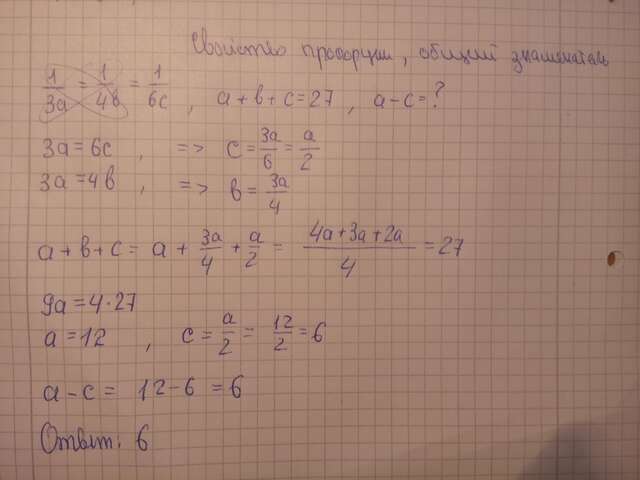 Свойство пропорции, общий знаменатель
1/3a = 1/4b = 1/6c , a+b+c=27, a-c=?
3a=6c , => c = 3a/6 = a/2
3a=4b , => b = 3a/4
a+b+c = a + 3a/4 + a/2 = 4a+3a+2a/4 = 27
9a=4·27
a=12 , c = a/2 = 12/2 = 6
a-c = 12-6 = 6
Ответ: 6